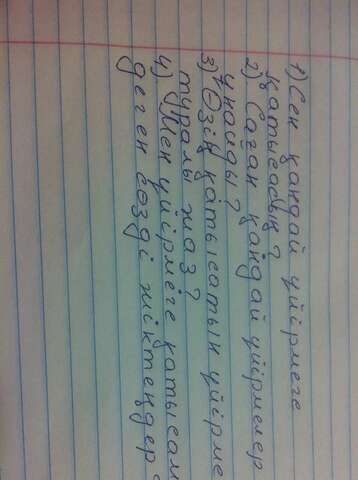 1) Сен қандай үйірмеге
қатысасың?
2) Саған қандай үйірмелер
ұнайды?
3) Өзің қатысатын үйірме
туралы жаз?
4) Мен үйірмеге қатысам
деген сөзді жіктеңдер